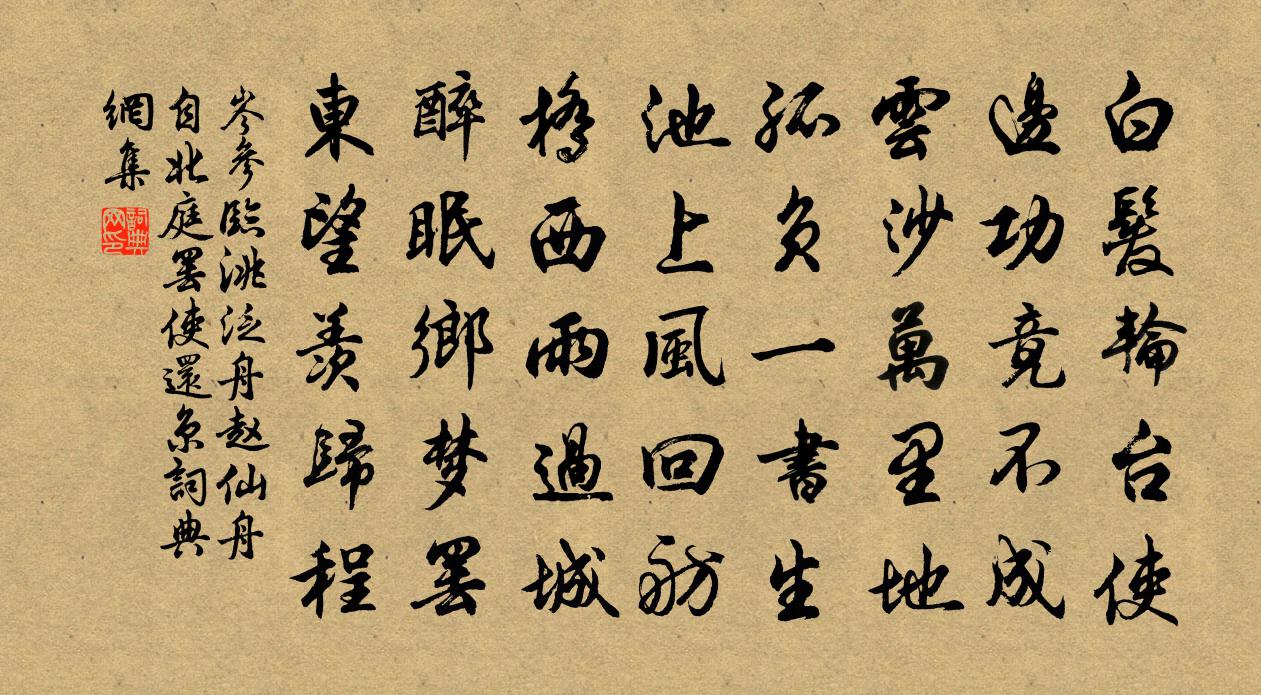 白髮輪台使
邊功竟不成
雲沙萬里地
孤負一書生
池上風回舫
橋西雨過城
醉眠鄉梦罷
東望羨歸程
岑參臨洮泛舟赵仙舟
自北庭罢使還京詞典
網集
詞典
网印